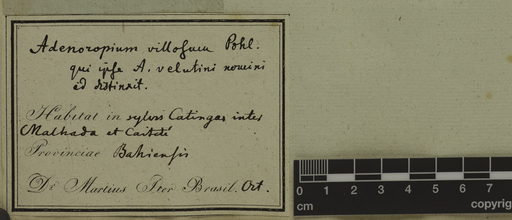 Adenoropium villosum Pohl.
qui ipse A. velutini nomini
ed distinxit.
Habitat in sylvis Catingas inter
Malhada et Caiteté
Provinciae Bahiensis
Dr Martius Iter Brasil. Oct.
0 1 2 3 4 5 6 7
cm
copyrig